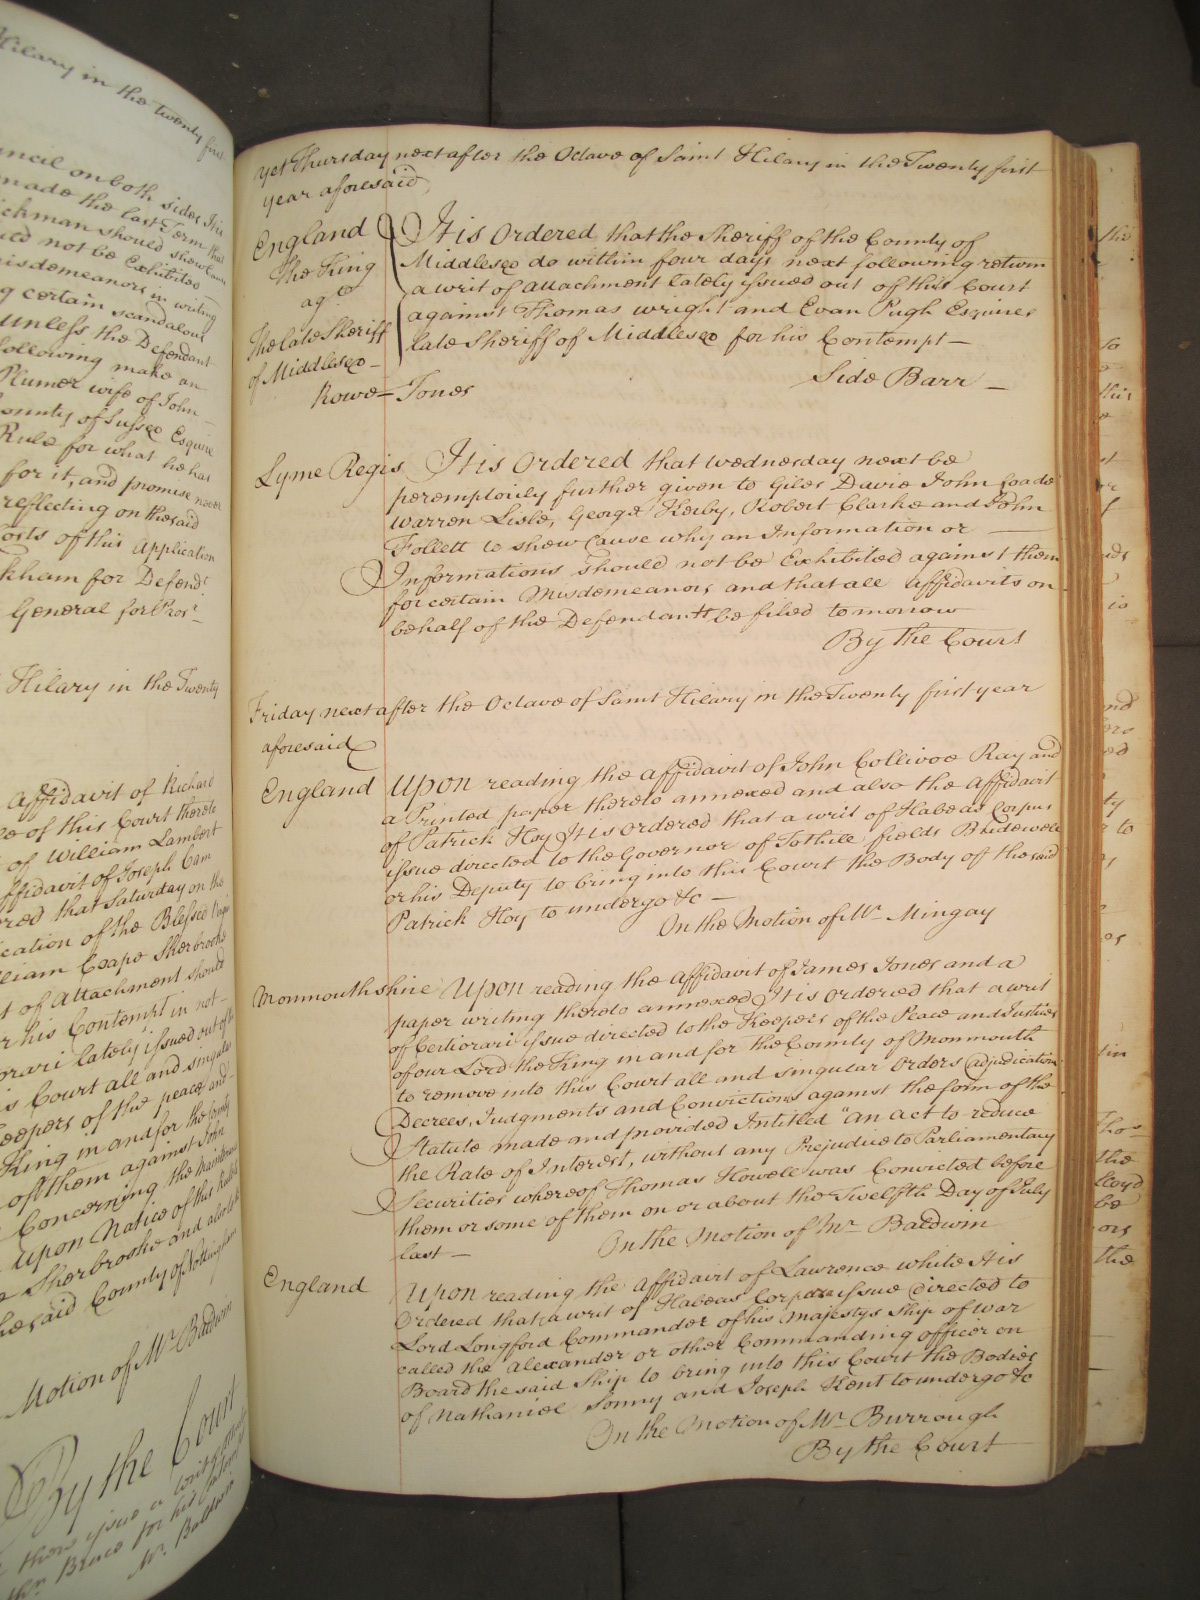 Hilary in the twenty first
Council on both sides It is
made the last Term that
should shew Cause
not be Exhibited
misdemeanors in writing
certain scandalous
unless the Defendant
following make an
Plumer wife of John
County of Sussex Esquire
Rule for what he has
for it, and promise never
reflecting on the said
Costs of this Application
for Defendt
General for Prosr
Hilary in the Twenty
Affidavit of Richard
of this Court thereto
of William Lambert
Affidavit of Joseph Cam
that Saturday on the
of the Blessed
William Cape Sherbrooke
of Attachment should
his Contempt in not
lately issued out of
Court all and singular
Keepers of the peace and
King in and for the County
of them against John
Concerning the
upon Notice of this Rule
Sherbrooke and also
the said County of Nottingham
Motion of Mr Baldwin
By the Court
issue a writ
for his
Mr Baldwin
yet Thursday next after the Octave of Saint Hilary in the Twenty first
year aforesaid
England It is Ordered that the Sheriff of the County of
The King Middlesex do within four days next following return
agt a writ of attachment lately issued out of this Court
against Thomas wright and Evan Pugh Esquires
The late Sheriff late Sheriff of Middlesex for his Contempt —
of Middlesex — Side Barr —
Rowe — Jones
Lyme Regis It is Ordered that wednesday next be
peremptorily further given to Giles Davie John Coade
Warren Lisle, George Kerby, Robert Clarke and John
Follett to shew Cause why an Information or —
Informations should not be Exhibited against them
for certain Misdemeanors and that all affidavits on
behalf of the Defendants be filed to morrow
By the Court
Friday next after the Octave of Saint Hilary in the Twenty first year
aforesaid
England Upon reading the affidavit of John Collivoe Ray and
a Printed paper thereto annexed and also the Affidavit
of Patrick Hoy It is Ordered that a writ of Habeas Corpus
issue directed to the Governor of Tothill fields Bridewell
or his Deputy to bring into this Court the Body of the said
Patrick Hoy to undergo &c —
On the Motion of Mr Mingay
Monmouthshire Upon reading the Affidavit of James Jones and a
paper writing thereto annexed It is ordered that a writ
of Certiorari issue directed to the Keepers of the Peace and Justices
of our Lord the King in and for the County of Monmouth
to remove into this Court all and singular Orders Adjudications
Decrees, Judgments and Convictions against the form of the
Statute made and provided Intitled "an act to reduce
the Rate of Interest, without any Prejudice to Parliamentary
Securities whereof Thomas Howell was Convicted before
them or some of them on or about the Twelfth Day of July
last — On the Motion of Mr Baldwin
England Upon reading the Affidavit of Lawrence white It is
Ordered that a writ of Habeas Corpora issue Directed to
Lord Longford Commander of his Majestys Ship of War
called the Alexander or other Commanding officer on
Board the said Ship to bring into this Court the Bodies
of Nathaniel Sonny and Joseph Kent to undergo &c
On the Motion of Mr Burrough
By the Court